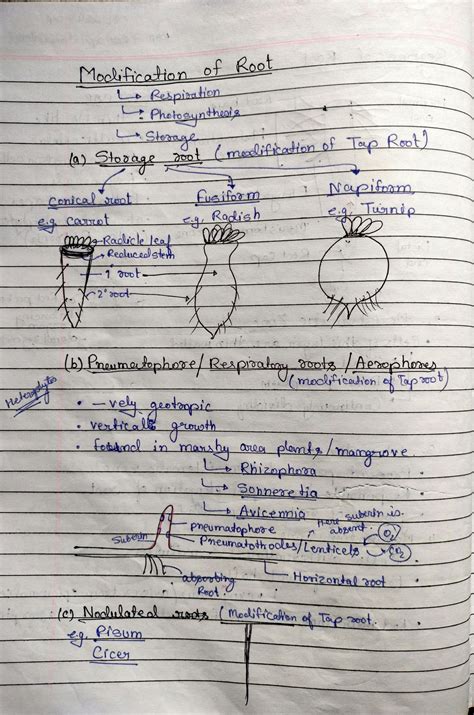 Modification of Root
↳ Respiration
↳ Photosynthesis
↳ Storage
(a) Storage root (modification of Tap Root)
Conical root
e.g. Carrot
Fusiform
e.g. Radish
Napiform
e.g. Turnip
Radicle leaf
Reduced stem
1° root
2° root
(b) Pneumatophore/ Respiratory roots /Aerophores
(modification of Tap root)
Heterophytes
• -vely geotropic
• verticals growth
• found in marshy area plants/mangrove
↳ Rhizophora
↳ Sonneretia
↳ Avicennia
Suberin
Pneumatophore
Here suberin is absent.
Pneumathodes/Lenticels
O₂
CO₂
absorbing Root
Horizontal root
(c) Nodulated roots (Modification of Tap root.
eg. Pisum
Cicer